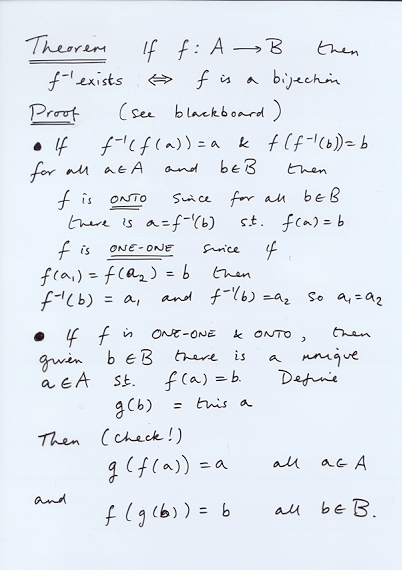 Theorem If f : A → B then
f⁻¹ exists ⇔ f is a bijection
Proof (see blackboard)
• If f⁻¹(f(a)) = a & f(f⁻¹(b)) = b
for all a∈A and b∈B then
f is ONTO since for all b∈B
there is a = f⁻¹(b) s.t. f(a) = b
f is ONE-ONE since if
f(a₁) = f(a₂) = b then
f⁻¹(b) = a₁ and f⁻¹(b) = a₂ so a₁ = a₂
• If f is ONE-ONE & ONTO, then
given b∈B there is a unique
a∈A st. f(a) = b. Define
g(b) = this a
Then (check!)
g(f(a)) = a all a∈A
and
f(g(b)) = b all b∈B.